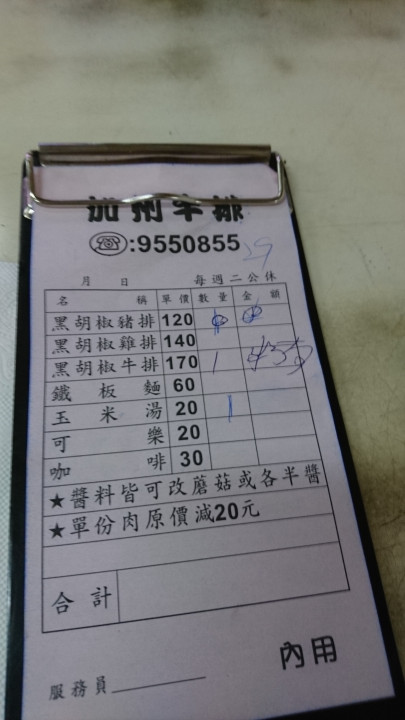 加州牛排
☏:9550855
月 日 每週二公休
名 稱 單價 數量 金 額
黑胡椒豬排 120
黑胡椒雞排 140
黑胡椒牛排 170 1
鐵板麵 60
玉米湯 20 1
可樂 20
咖啡 30
★醬料皆可改蘑菇或各半醬
★單份肉原價減20元
合計
內用
服務員